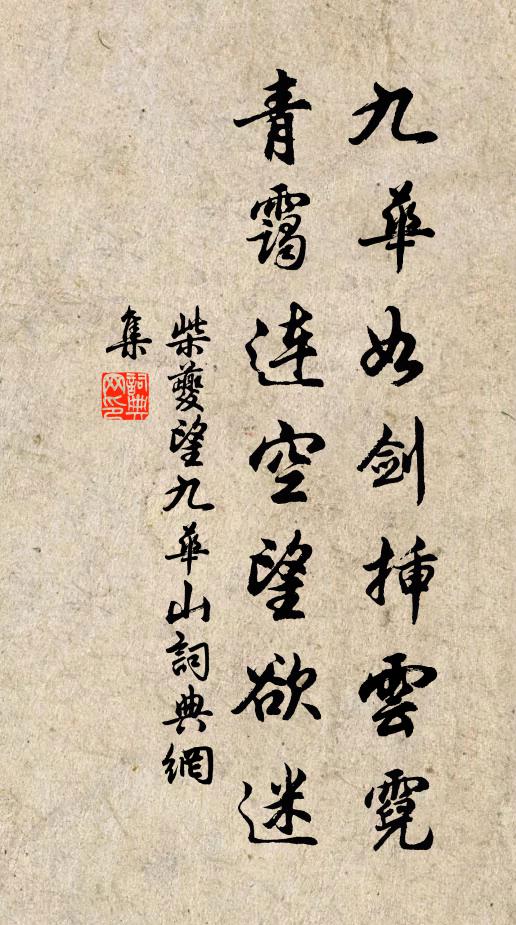 九華如剑揷雲霓
青靄連空望欲迷
柴夔望九華山詞典網
集
詞典
网印